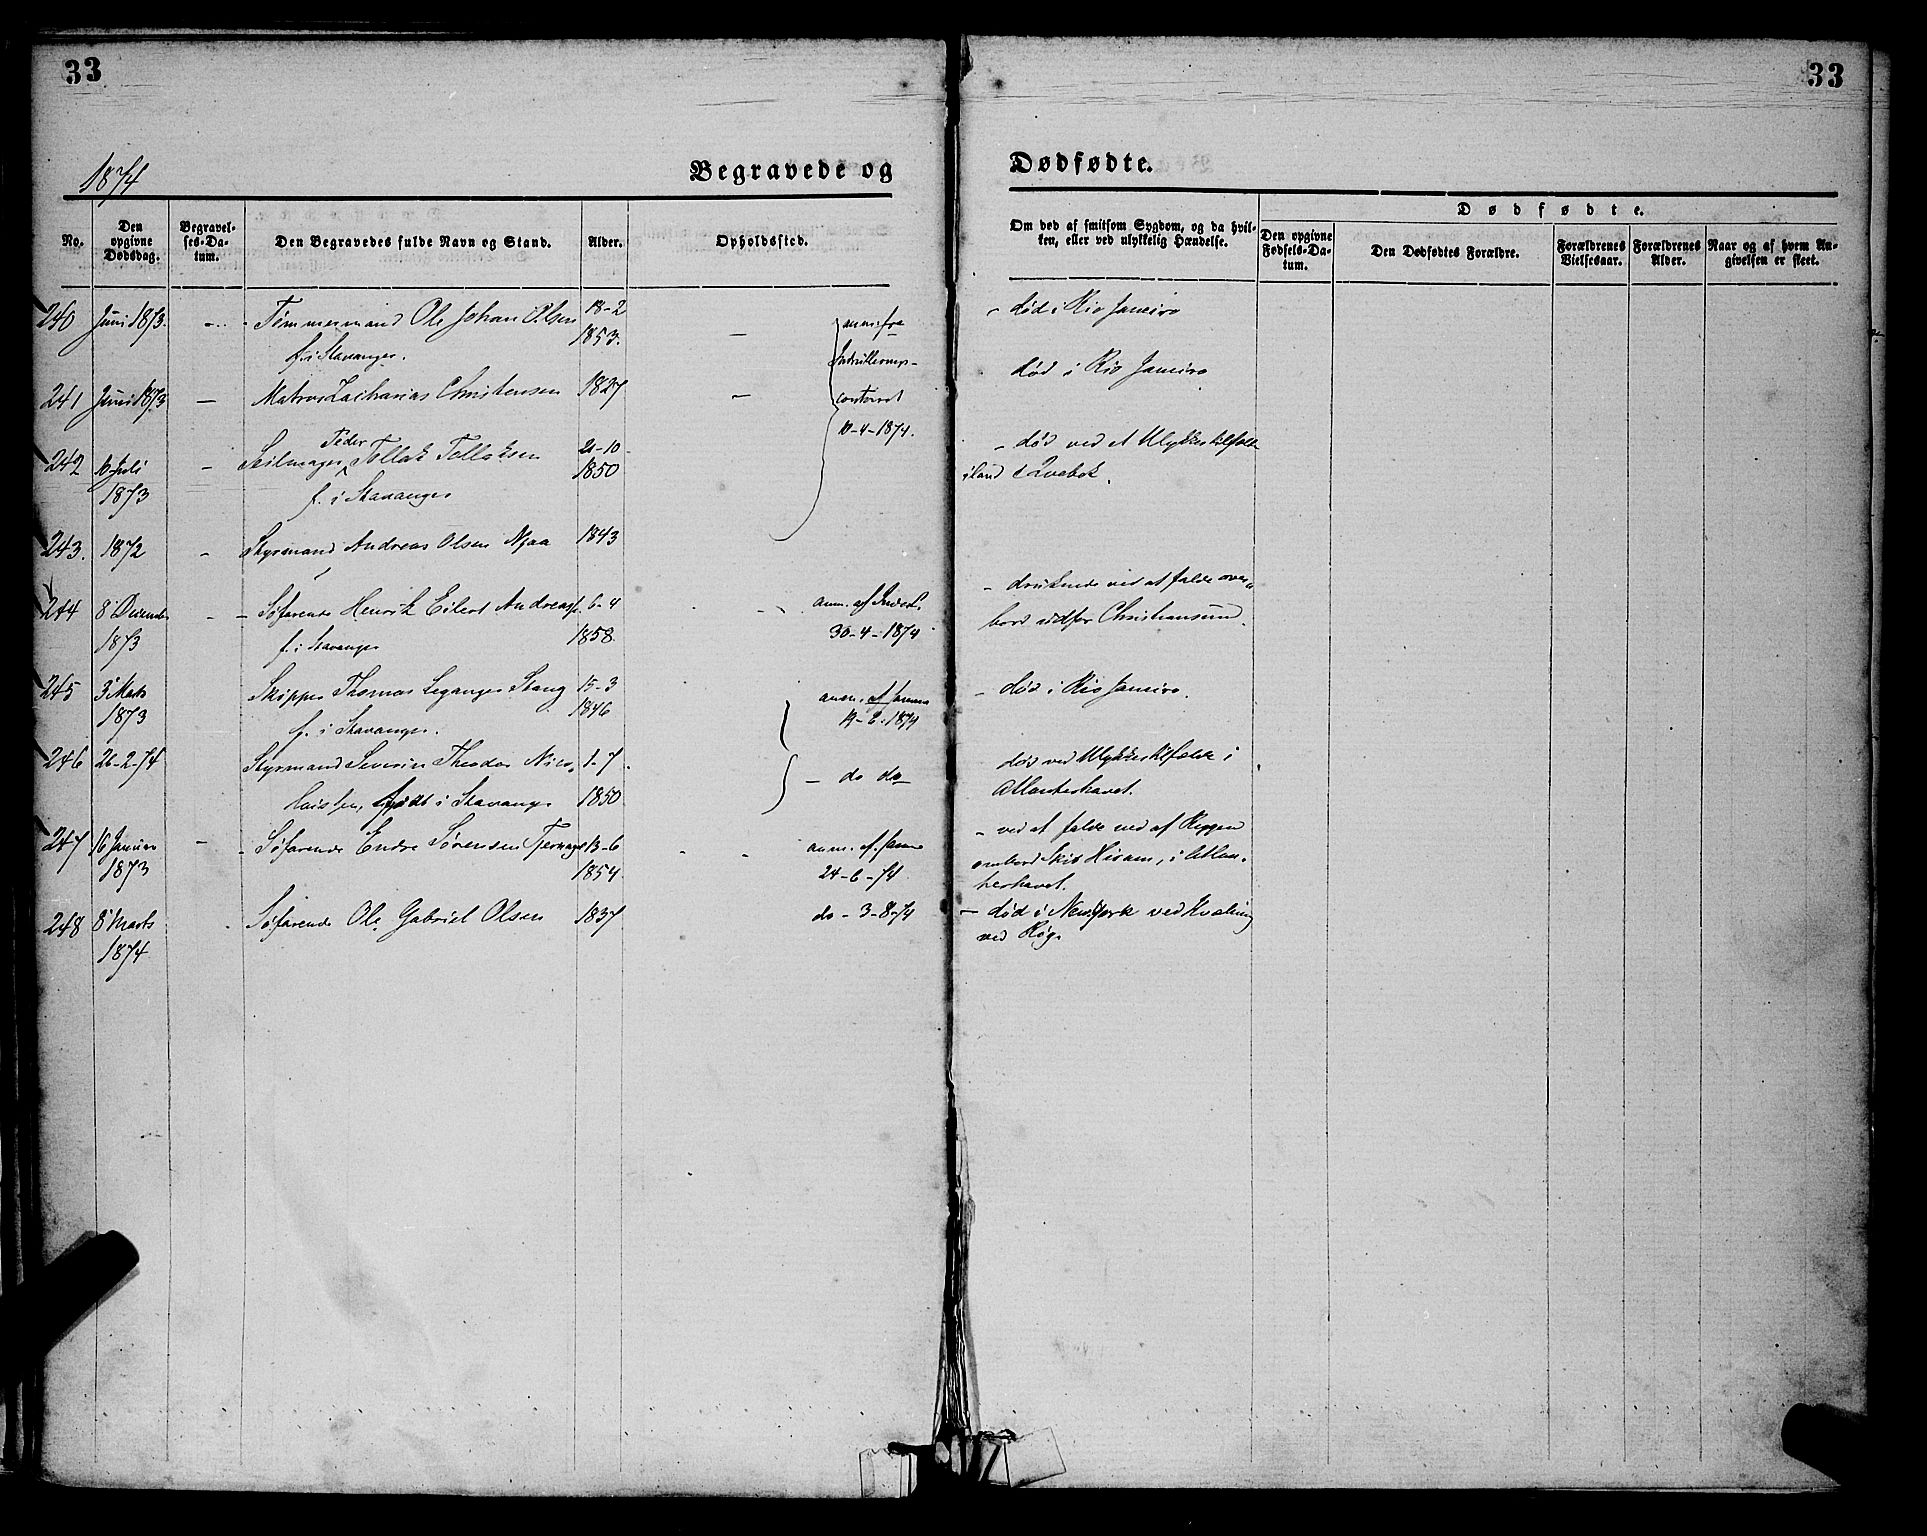 33
33
1874
Begravede og
Dødfødte.
No.
Den opgivne Dødsdag.
Begravelses-Datum.
Den Begravedes fulde Navn og Stand.
Alder.
Opholdssted.
Om død af smitsom Sygdom, og da hvilken, eller ved ulykkelig Hændelse.
Dødfødte.
Den opgivne Fødsels-Datum.
Den Dødfødtes Forældre.
Forældrenes Vielsesaar.
Forældrenes Alder.
Naar og af hvem Angivelsen er skeet.
240 Juni 1873. - Tømmermand Ole Johan Olsen 18-2 - anm. fra - død i Rio Janeiro
f. i Stavanger. 1853.
241 Juni 1873 - Matros Zacharias Christensen 1827 - contoret død i Rio Janeiro
10-4-1874.
Peder
242 Juli - Seilmager Tollak Tollaksen 21-10- - død ved et Ulykkestilfælde
1873 f. i Stavanger 1850 iland i Qvebek.
243. 1872 - Styrmand Andreas Olsen Njaa 1843
244 8 December - Søfarende Henrik Eilert Andreas 6-4 anm. af - druknede ved at falde over
1873 f. i Stavanger 1858. 30-4-1874 bord udfor Christiansund.
245 3 Marts Skipper Thomas Leganger Stang 15-3 anm. af - død i Rio Janeiro.
1873 f. i Stavanger. 1846 1874
246 26-2-74 Styrmand Severin Theodor 1-7 - do do død ved Ulykkestilfælde i
født i Stavanger 1850 Atlanterhavet.
247 16 Januar - Søfarende Endre Sørensen Tjernagel 13-6 anm. af - ved at falde ned af Riggen
1873 1854 24-6-74 ombord Skib Hiram, i Atlan-
terhavet.
248 8 Marts Søfarende Ole Gabriel Olsen 1837 do - 3-8-74 - død i New York ved Kvælning
1874 ved Røg.